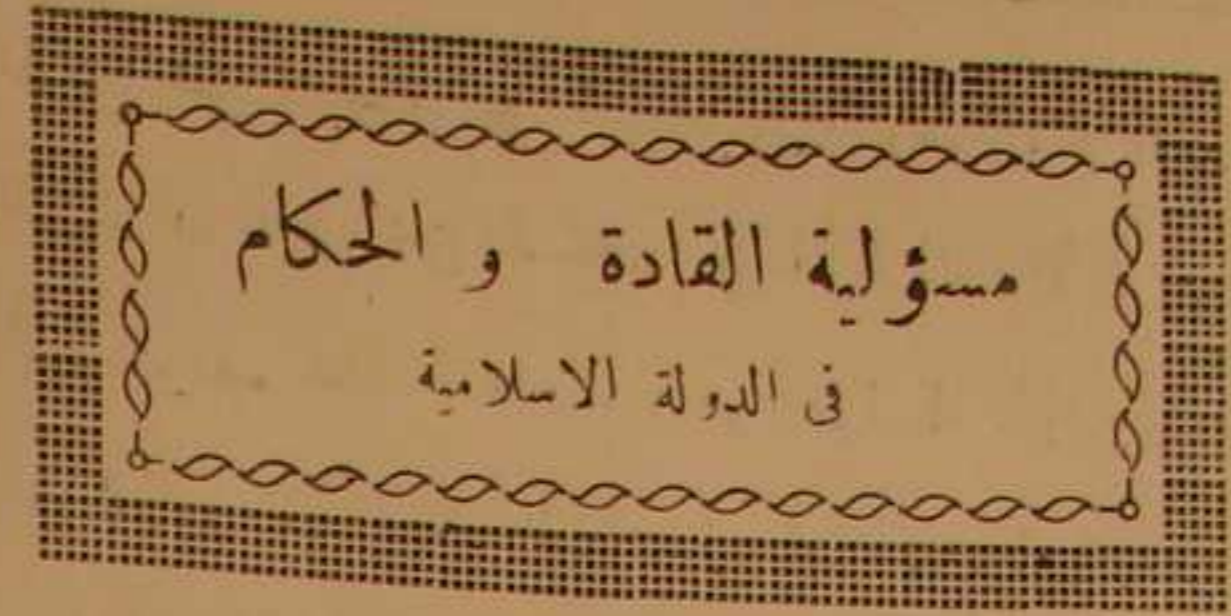 مسؤلية القادة و الحكام
فى الدولة الاسلامية